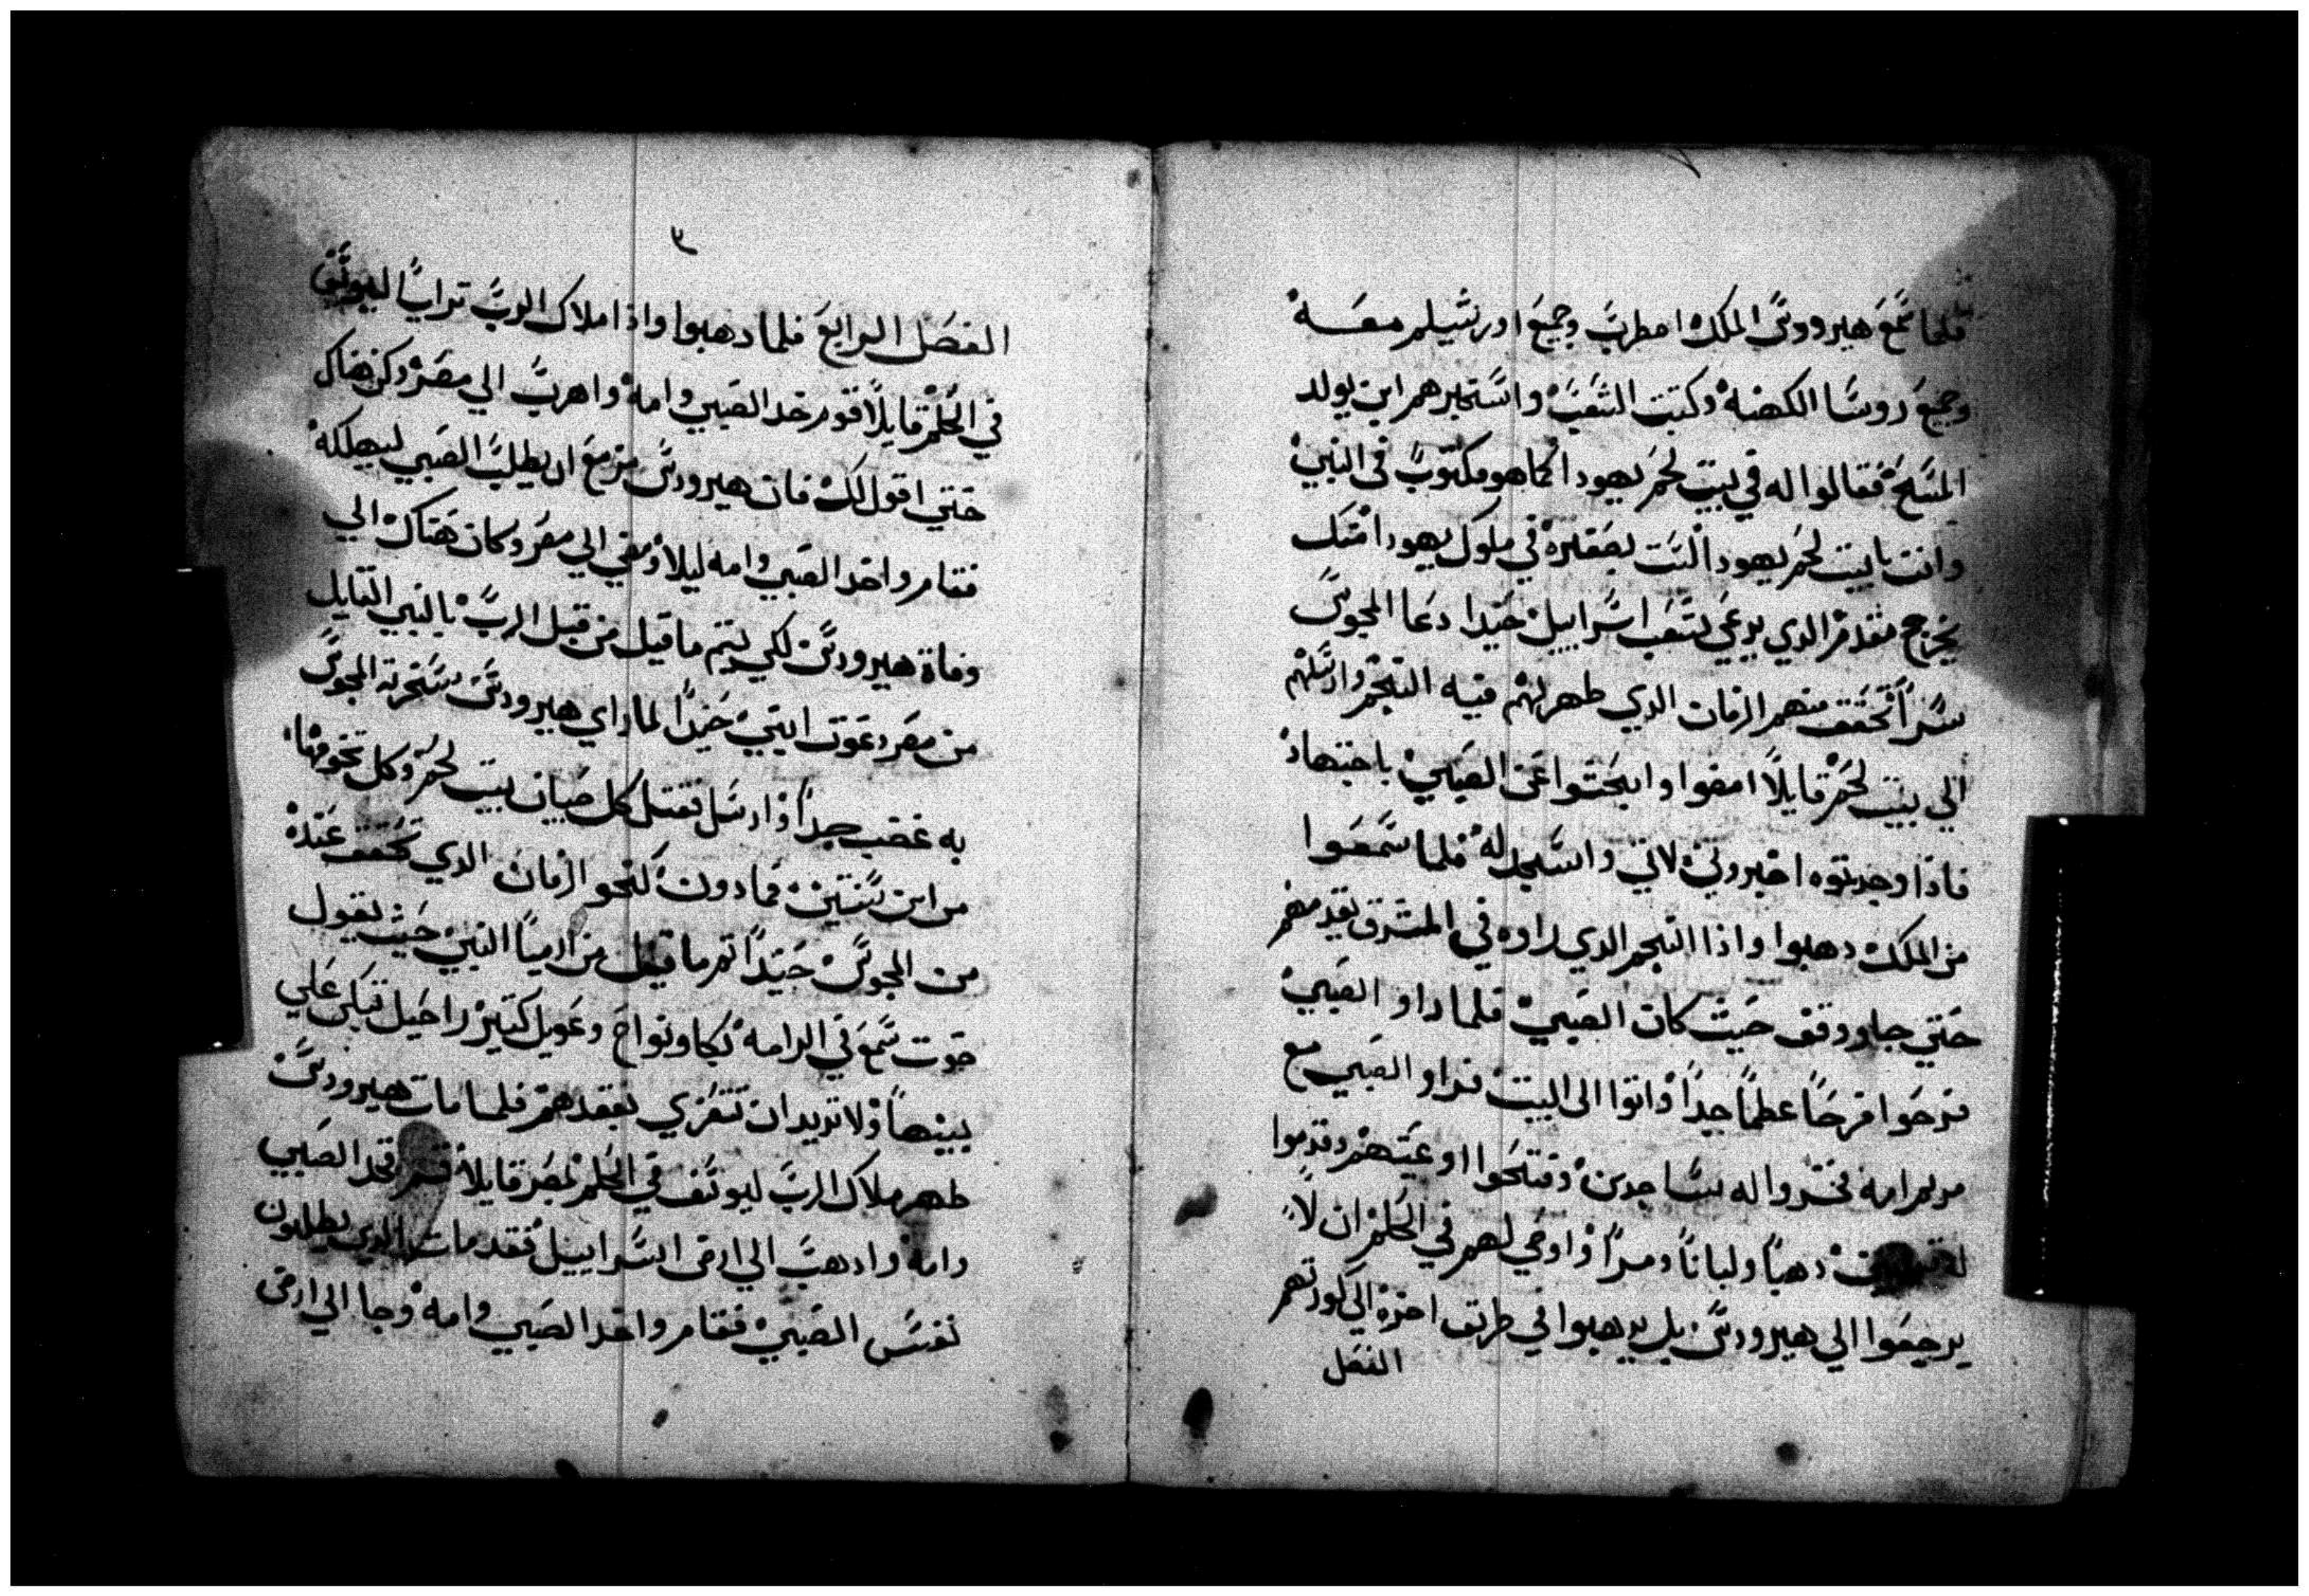 فلما سمع هيرودس الملك اضطرب وجميع اورشيلم معه
وجميع روسا الكهنه وكتبت الشعب واستخبرهم اين يولد
المسيح فقالوا له في بيت لحم يهودا كما هو مكتوب في النبي
وانت يا بيت لحم يهودا لست بصغيره في ملوك يهودا منك
يخرج مقدم الدي يرعي شعب اسراييل حيندا دعا المجوس
سرا تحقق منهم الزمان الدي ظهر لهم فيه النجم وارسلهم
الي بيت لحم قايلا امضوا وابحثوا عن الصبي باجتهاد
فاذا وجدتوه اخبروني لاتي واسجد له فلما سمعوا
من الملك دهبوا واذا النجم الدي راوه في المشرق يقدمهم
حتي جا ووقف حيث كان الصبي فلما راو الصبي
فرحوا فرحا عظما جدا واتوا الى البيت فراو الصبي مع
مريم امه فخروا له ساجدين وفتحوا اوعيتهم وقدموا
له دهبا ولبانا ومرا واوحي لهم في الحلم ان لا
يرجعوا الي هيرودس بل يدهبوا في طريق اخره الي كورتهم
الفصل
٣
الفصل الرابع فلما دهبوا واذا ملاك الرب ترايا ليوسف
في الحلم قايلا قوم خد الصبي وامه واهرب الي مصر وكن هناك
حتي اقول لك فان هيرودس مزمع ان يطلب الصبي ليهلكه
فقام واخد الصبي وامه ليلا ومضي الي مصر وكان هناك الي
وفاة هيرودس لكي يتم ما قيل من قبل الرب بالنبي القايل
من مصر دعوت ابني حيندا لما راي هيرودس سخرية المجوس
به غضب جدا وارسل فقتل كل صبيان بيت لحم وكل تخومها
من ابن سنتين فما دون كنحو الزمان الدي تحقق عنده
من المجوس حيندا تم ما قيل من ارميا النبي حيث يقول
صوت سمع في الرامه بكا ونواح وعويل كتير راحيل تبكي علي
بينها ولا تريد ان تتعزي لفقدهم فلما مات هيرودس
ظهر ملاك الرب ليوسف في الحلم بمصر قايلا قم فخد الصبي
وامه وادهب الي ارض اسراييل فقد مات الدي يطلبون
نفس الصبي فقام واخد الصبي وامه وجا الي ارض